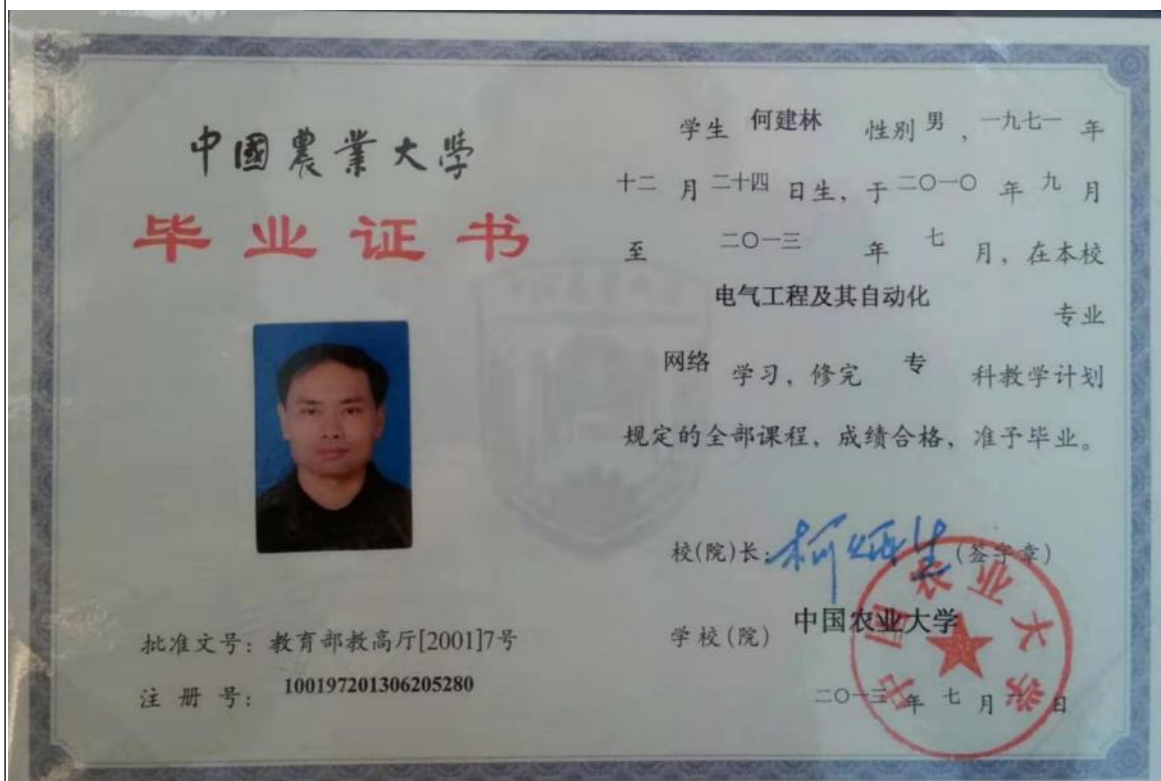 中國農業大學
毕业证书
批准文号：教育部教高厅[2001]7号
注 册 号：100197201306205280
学生 何建林 性别 男，一九七一 年
十二 月 二十四 日生，于 二〇一〇 年 九 月
至 二〇一三 年 七 月，在本校
电气工程及其自动化 专业
网络 学习，修完 专 科教学计划
规定的全部课程，成绩合格，准予毕业。
校(院)长：柯炳生(签字章)
学校(院) 中国农业大学
二〇一三年 七 月 日
中国农业大学